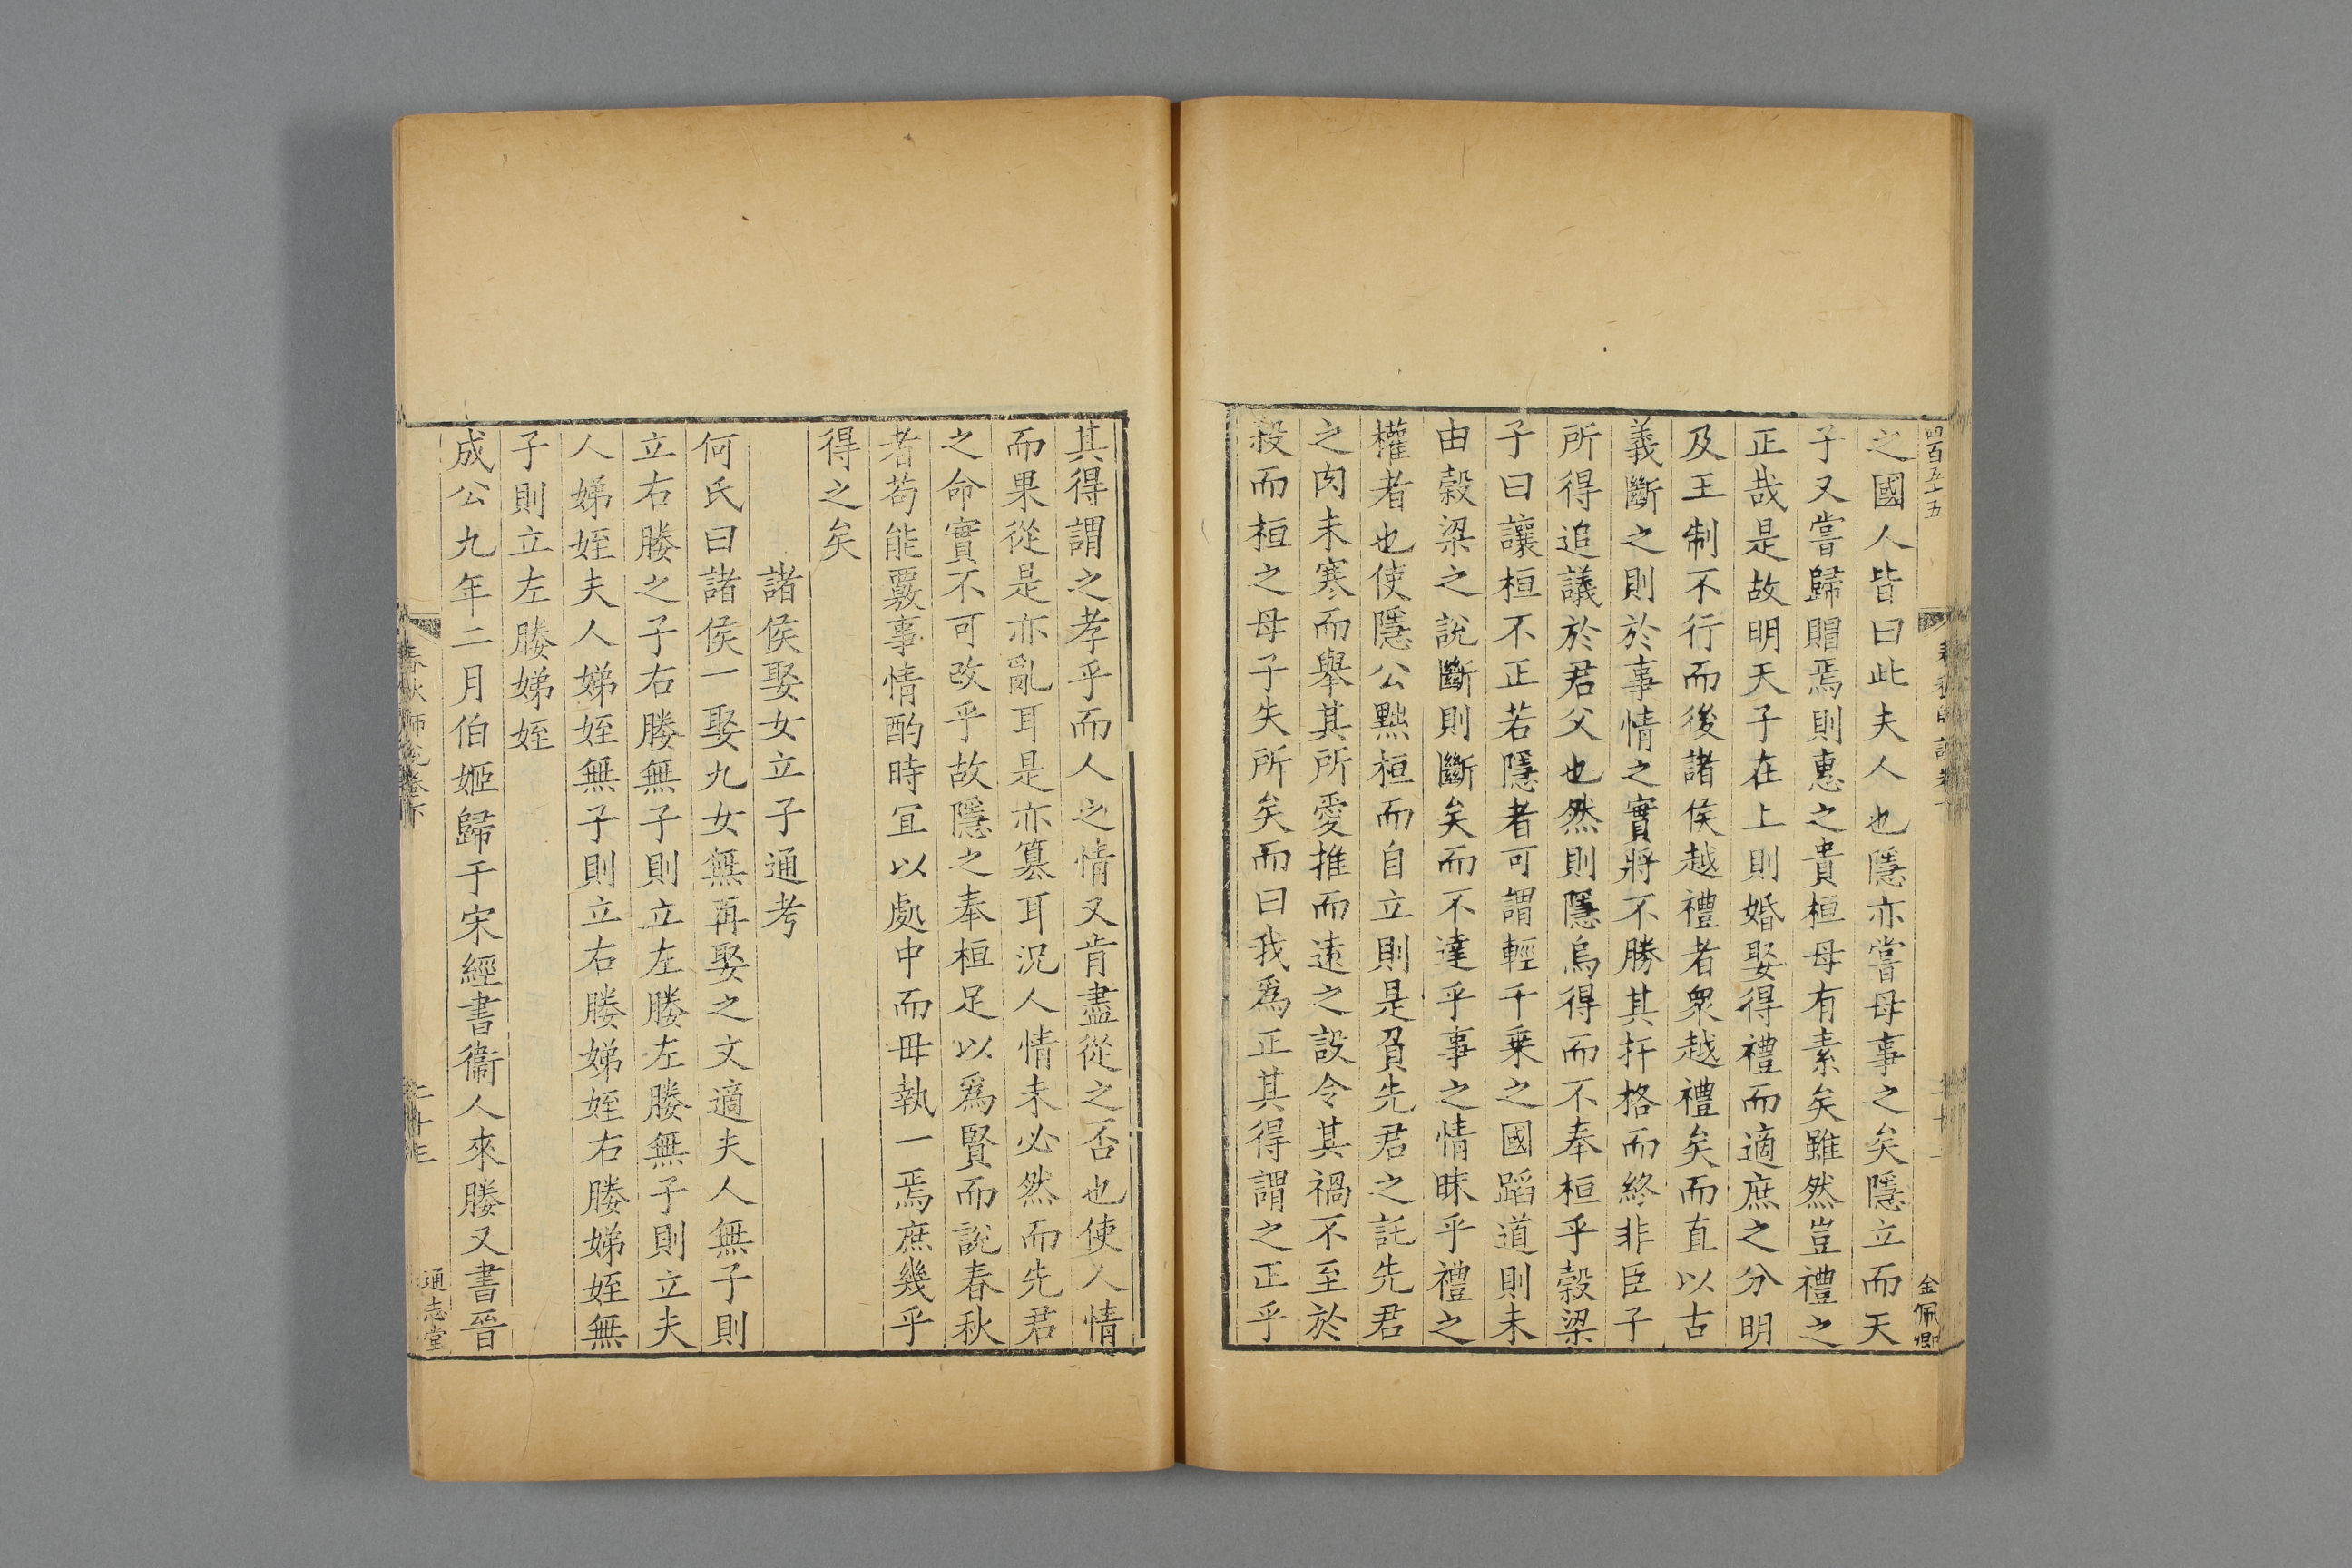 四百五十五
金佩卿
之國人皆曰此夫人也隱亦嘗母事之矣隱立而天
子又嘗歸賵焉則惠之貴桓母有素矣雖然豈禮之
正哉是故明天子在上則婚娶得禮而適庶之分明
及王制不行而後諸侯越禮者衆越禮矣而直以古
義斷之則於事情之實將不勝其扞格而終非臣子
所得追議於君父也然則隱烏得而不奉桓乎穀梁
子曰讓桓不正若隱者可謂輕千乗之國蹈道則未
由穀梁之說斷則斷矣而不達乎事之情昧乎禮之
權者也使隱公黜桓而自立則是負先君之託先君
之肉未寒而舉其所愛推而遠之設令其禍不至於
殺而桓之母子失所矣而曰我爲正其得謂之正乎
其得謂之孝乎而人之情又肯盡從之否也使人情
而果從是亦亂耳是亦篡耳況人情未必然而先君
之命實不可改乎故隱之奉桓足以爲賢而說春秋
者苟能覈事情酌時宜以處中而毋執一焉庶幾乎
得之矣
諸侯娶女立子通考
何氏曰諸侯一娶九女無再娶之文適夫人無子則
立右媵之子右媵無子則立左媵左媵無子則立夫
人娣姪夫人娣姪無子則立右媵娣姪右媵娣姪無
子則立左媵娣姪
成公九年二月伯姬歸于宋經書衞人來媵又書晉
春秋師說卷下
通志堂